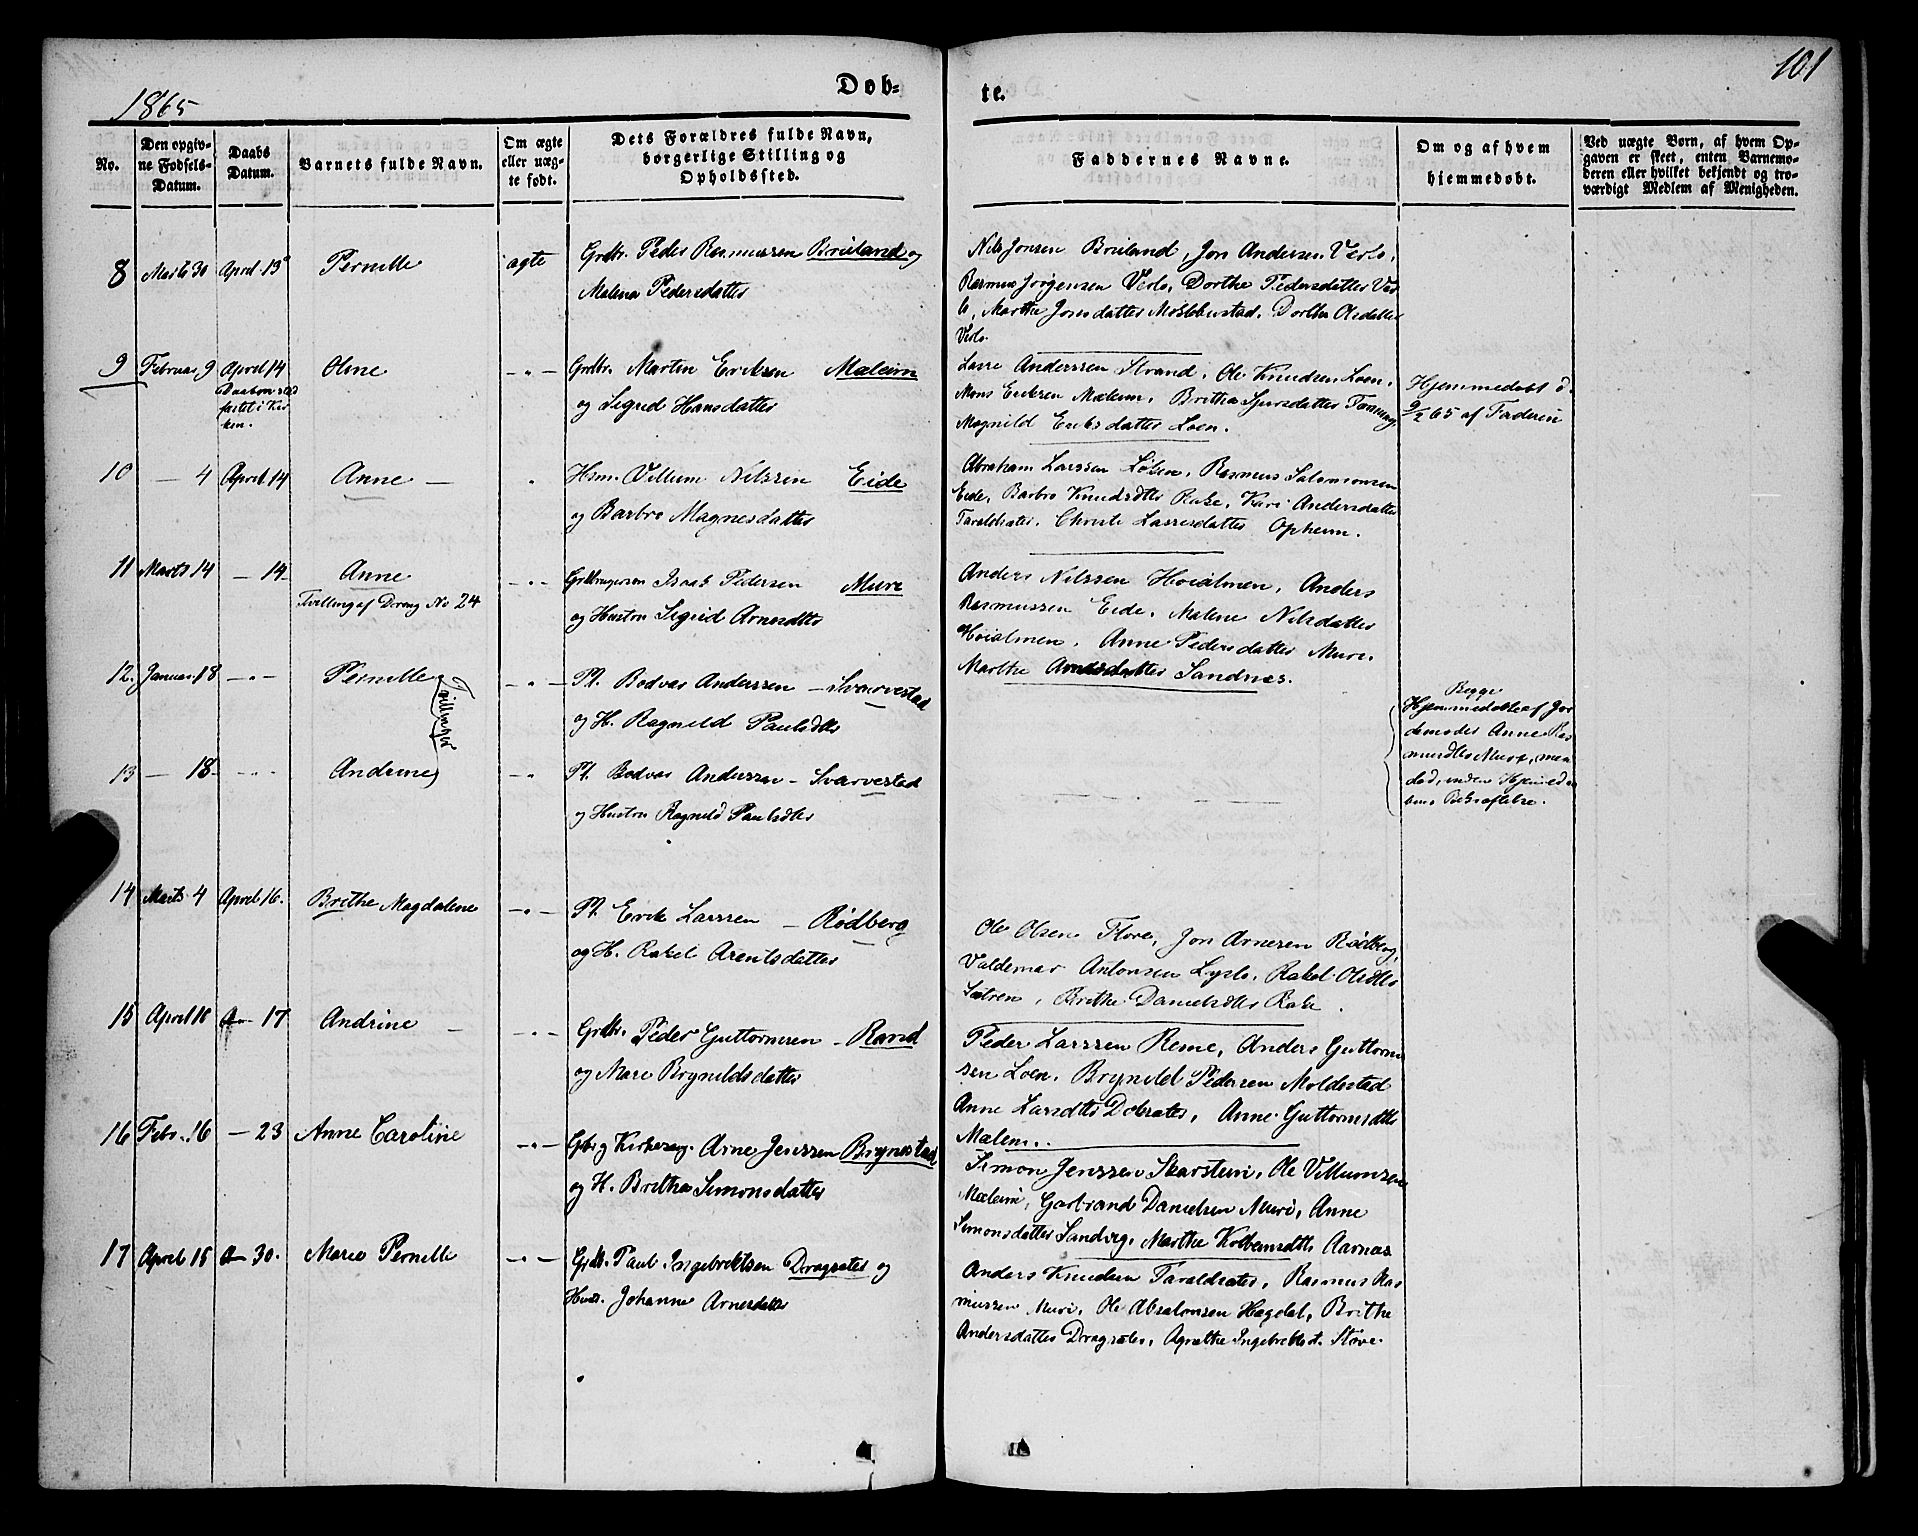 1865
Døb-
te.
101
No.
Den opgiv-
ne Fødsels-
Datum.
Daabs
Datum.
Barnets fulde Navn.
Om ægte
eller uæg-
te født.
Dets Forældres fulde Navn,
borgerlige Stilling og
Opholdssted.
Faddernes Navne.
Om og af hvem
hjemmedøbt.
Ved uægte Børn, af hvem Op-
gaven er skeet, enten Barnemo-
deren eller hvilket bekjendt og tro-
værdigt Medlem af Menigheden.
8 Marts 30 April 13 Pernille ægte Grdbr. Peder Rasmussen Brieland og
Malena Pedersdatter
Nils Jonsen Brieland, Jon Andersen Verlo,
Rasmus Jørgensen Verlo, Dorthe Pedersdatter Ver
lo, Marthe Jonsdatter Moldestad. Dorthe Olsdatter
Verlo.
9 Februar 9 April 14 Oline — " — Grdbr. Martin Eriksen Maleim
Daaben stad
fæstet i Kir
ken.
og Sigrid Hansdatter
Lasse Anderssen Strand, Ole Knudsen Loen,
Mons Eriksen Mæleim, Britha Sjursdatter Tenning
Magnild Eriksdatter Loen.
Hjemmedøbt d.
9/2 65 af Faderen
10 — 4 April 14 Anne — " Hsm. Villum Nilssen Eide
og Barbro Magnesdatter
Abraham Larssen Løken, Rasmus Salomonsen
Eide, Barbro Knudsdtr Rake, Kari Andersdatter
Taraldsæter, Christi Lassesdatter Opheim.
11 Marts 14 — 14 — Anne — " — Grdbrugerson Isaak Pedersen Mure
Tvilling af Dreng No 24
og Hustru Sigrid Arnesdtter
Anders Nilssen Hoialmen, Anders
Rasmussen Eide, Malene Nilsdatter
Hoialmen, Anne Pedersdatter Mure.
Marthe Arnesdatter Sandnes.
12. Januar 18 — " — Pernille — " — Pl. Bodvar Anderssen — Svarvestad
og H. Ragnild Paulsdtr
Tvillinger
Begge
Hjemmedøbte af Jor
demoder Anne Ras
musdtr Mure, men
død, inden Hjemmedaa
bens Bekræftelse.
13 — 18 — " — Andrine — " Pl. Bodvar Anderssen — Svarvestad
og Hustru Ragnild Paulsdtr
14 Marts 4 April 16. Brithe Magdalene — " — Pl. Erik Larssen — Rødberg
og H. Rakel Arentsdatter
Ole Olsen Flore, Jon Arnesen Rødberg,
Valdemar Antonsen Lyslo, Rakel Olsdtr
Sætren, Brithe Danielsdtr Rake.
15 April 16 17 Andrine — — " — Grdbr. Peder Guttormsen — Rand
og Mari Brynildsdatter
Peder Larssen Reme, Anders Guttorm
sen Loen, Brynild Pedersen Moldestad
Anne Larsdtr Dolsæter, Anne Guttormsdtr
Mælem.
16 Febr. 16 — 23 Anne Caroline — " — Gbr. og Kirkesang. Arne Jenssen Brynestad
og H. Brithe Simonsdatter
Simon Jenssen Skarstein, Ole Villumsen
Mæleim, Garbrand Danielsen Muri, Anne
Simonsdatter Sandvig, Marthe Kolbensdtr Aarnæs
17 April 15 30. Marie Pernille — " — Grdbr. Paul Ingebrektsen Dragsæter og
Hust. Johanne Arnesdatter
Anders Knudsen Taraldsæter, Rasmus Ras
mussen Muri, Ole Absalonsen Hægdal, Brithe
Andersdatter Dragsæter, Agnethe Ingebrektsd. Støve.